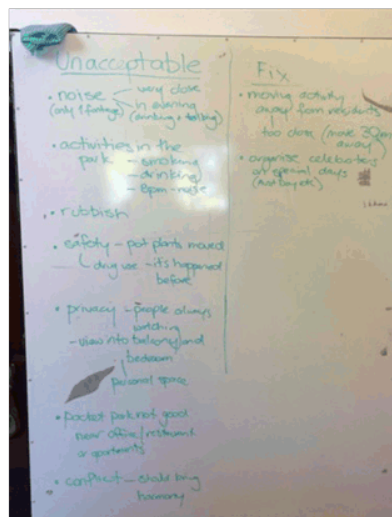 Unacceptable
• noise – very close
(only 1 footage) in evening
(drinking + talking)
• activities in the
park – smoking
– drinking
– 8pm – noise
• rubbish
• safety – pot plants moved
drug use – it's happened
before
• privacy – people always
watching
– view into balcony and
bedroom
personal space
• pocket park not good
near office/restaurant
or apartments
• conflict – should bring
harmony
Fix
• moving activity
away from residents
too close (move 30m
away)
• organise celebrations
on special days